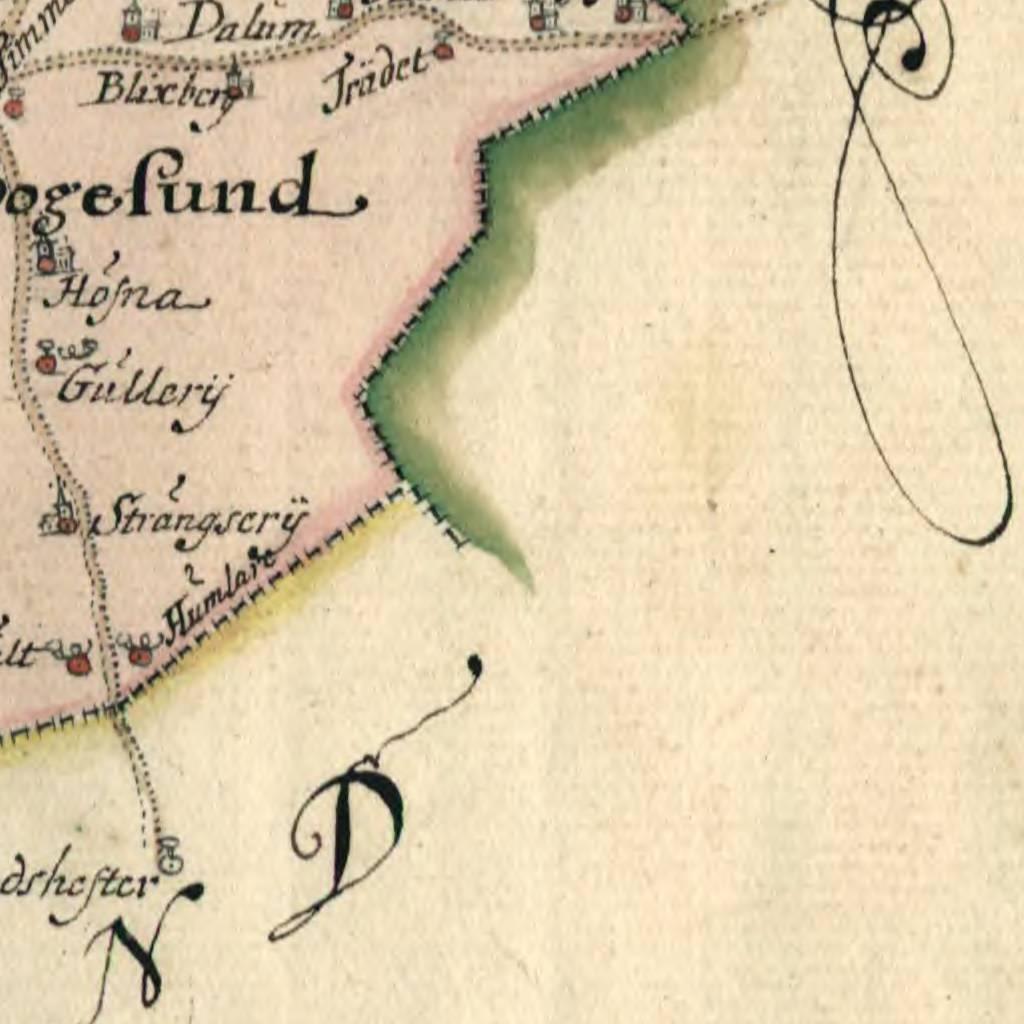 Dalum
Blixberg
Trädet
ogesund
Hösna
Gullerÿ
Strangserÿ
Humlare
dshester
D
N